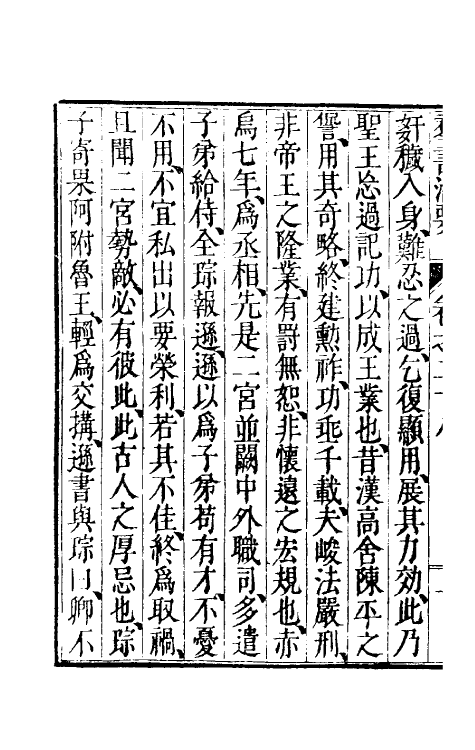 奸穢入身、難忍之過、乞復顯用、展其力効、此乃
聖王忘過記功、以成王業也、昔漢高舍陳平之
譽、用其奇略、終建勲祚、功乖千載、夫峻法嚴刑、
非帝王之隆業、有罰無恕、非懷遠之宏規也、赤
烏七年、爲丞相、先是二宮並闕、中外職司、多遣
子弟給侍、全琮報遜、遜以爲子弟苟有才、不憂
不用、不宜私出以要榮利、若其不佳、終爲取禍、
且聞二宮勢敵、必有彼此、此古人之厚忌也、琮
子寄果阿附魯王、輕爲交搆、遜書與琮曰、卿不